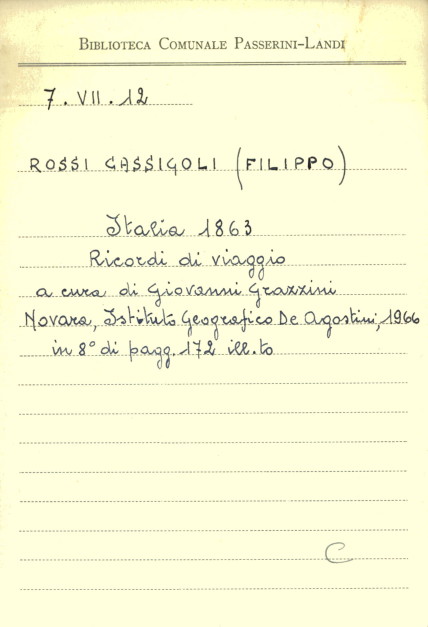 BIBLIOTECA COMUNALE PASSERINI-LANDI
7. VII. 12
ROSSI CASSIGOLI (FILIPPO)
Italia 1863
Ricordi di viaggio
a cura di Giovanni Grazzini
Novara, Istituto Geografico De Agostini, 1966
in 8° di pagg. 172 ill.to
C